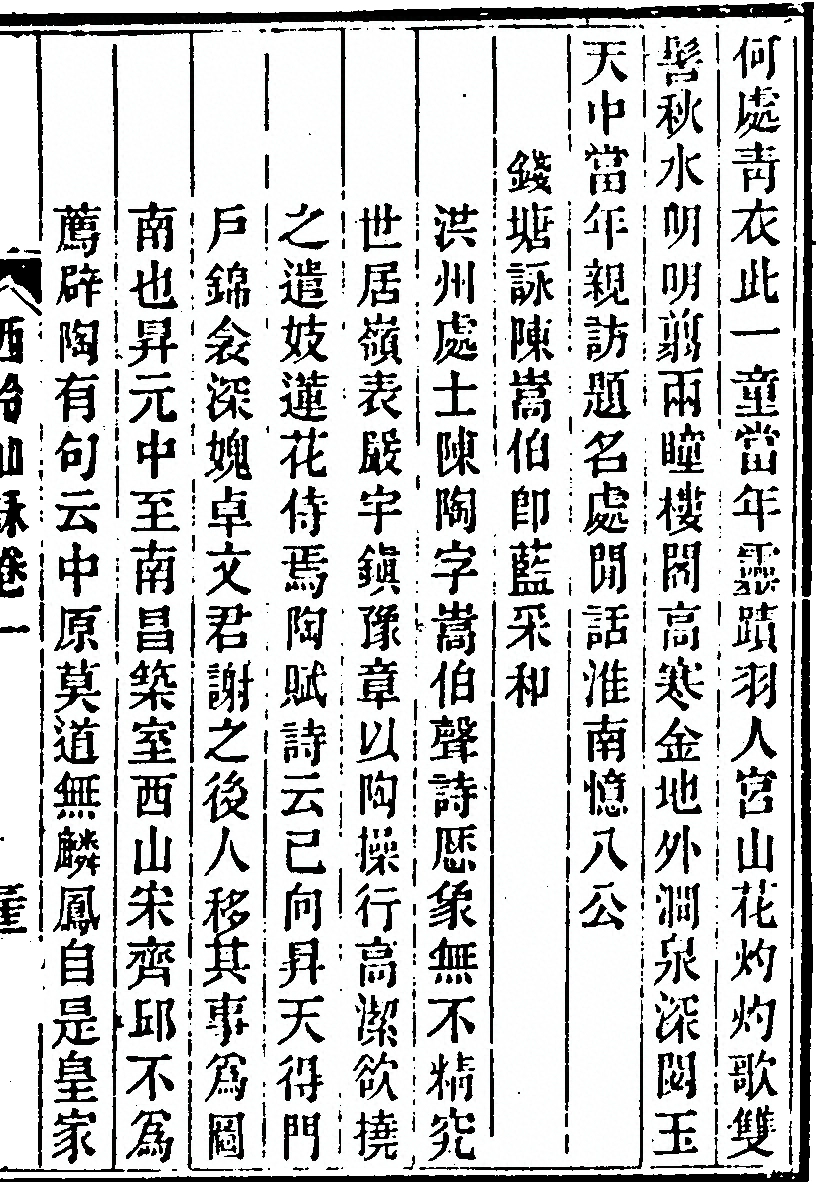 何處青衣此一童當年靈蹟羽人宮山花灼灼歌雙
髻秋水明明翦兩瞳樓閣高寒金地外澗泉深閟玉
天中當年親訪題名處閒話淮南憶八公
錢塘詠陳嵩伯卽藍采和
洪州處士陳陶字嵩伯聲詩厯象無不精究
世居嶺表嚴宇鎭豫章以陶操行高潔欲撓
之遣妓蓮花侍焉陶賦詩云已向昇天得門
戶錦衾深媿卓文君謝之後人移其事爲圖
南也昇元中至南昌築室西山宋齊邱不爲
薦辟陶有句云中原莫道無麟鳳自是皇家
卷一